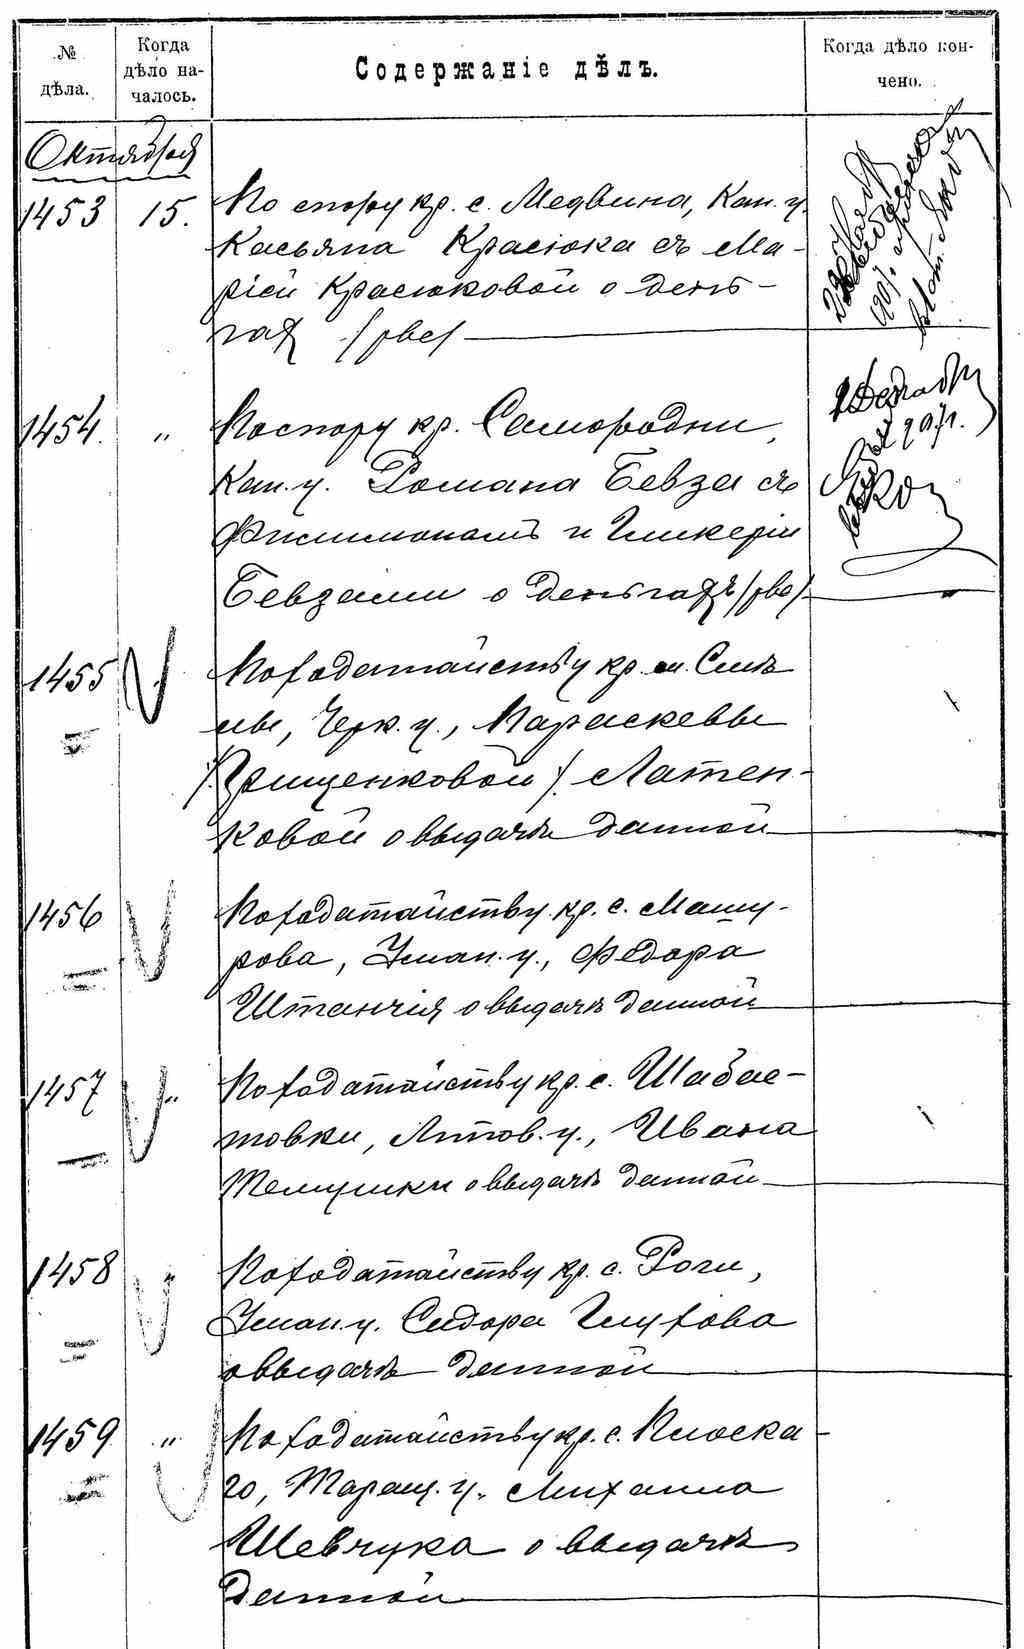 № дѣла.
Когда дѣло началось.
Содержаніе дѣлъ.
Когда дѣло кончено.
Октября
1453 15. По спору кр. с. Медвина, Кан. у.
Касьяна Красюка съ Ма-
ріей Красюковой о день-
гах
1454. „ По спору кр. Самородни,
Кан. у. Романа Бевза съ
Филимономъ и Гликеріей
Бевзами о деньгахъ
1455 По ходатайству кр. м. Смѣ
лы, Черк. у., Параскевы
/Грищенковой/ Латен-
ковой о выдачѣ данной
1456 По ходатайству кр. с. Машу-
рова, Уман. у., Федора
Штанчія о выдачѣ данной
1457 „ По ходатайству кр. с. Шабас-
товки, Липов. у., Ивана
о выдачѣ данной
1458 „ По ходатайству кр. с. Роги,
Уман. у. Сидора Глухова
о выдачѣ данной
1459 „ По ходатайству кр. с. Плоска-
го, Таращ. у. Михаила
Шевчука о выдачѣ
данной